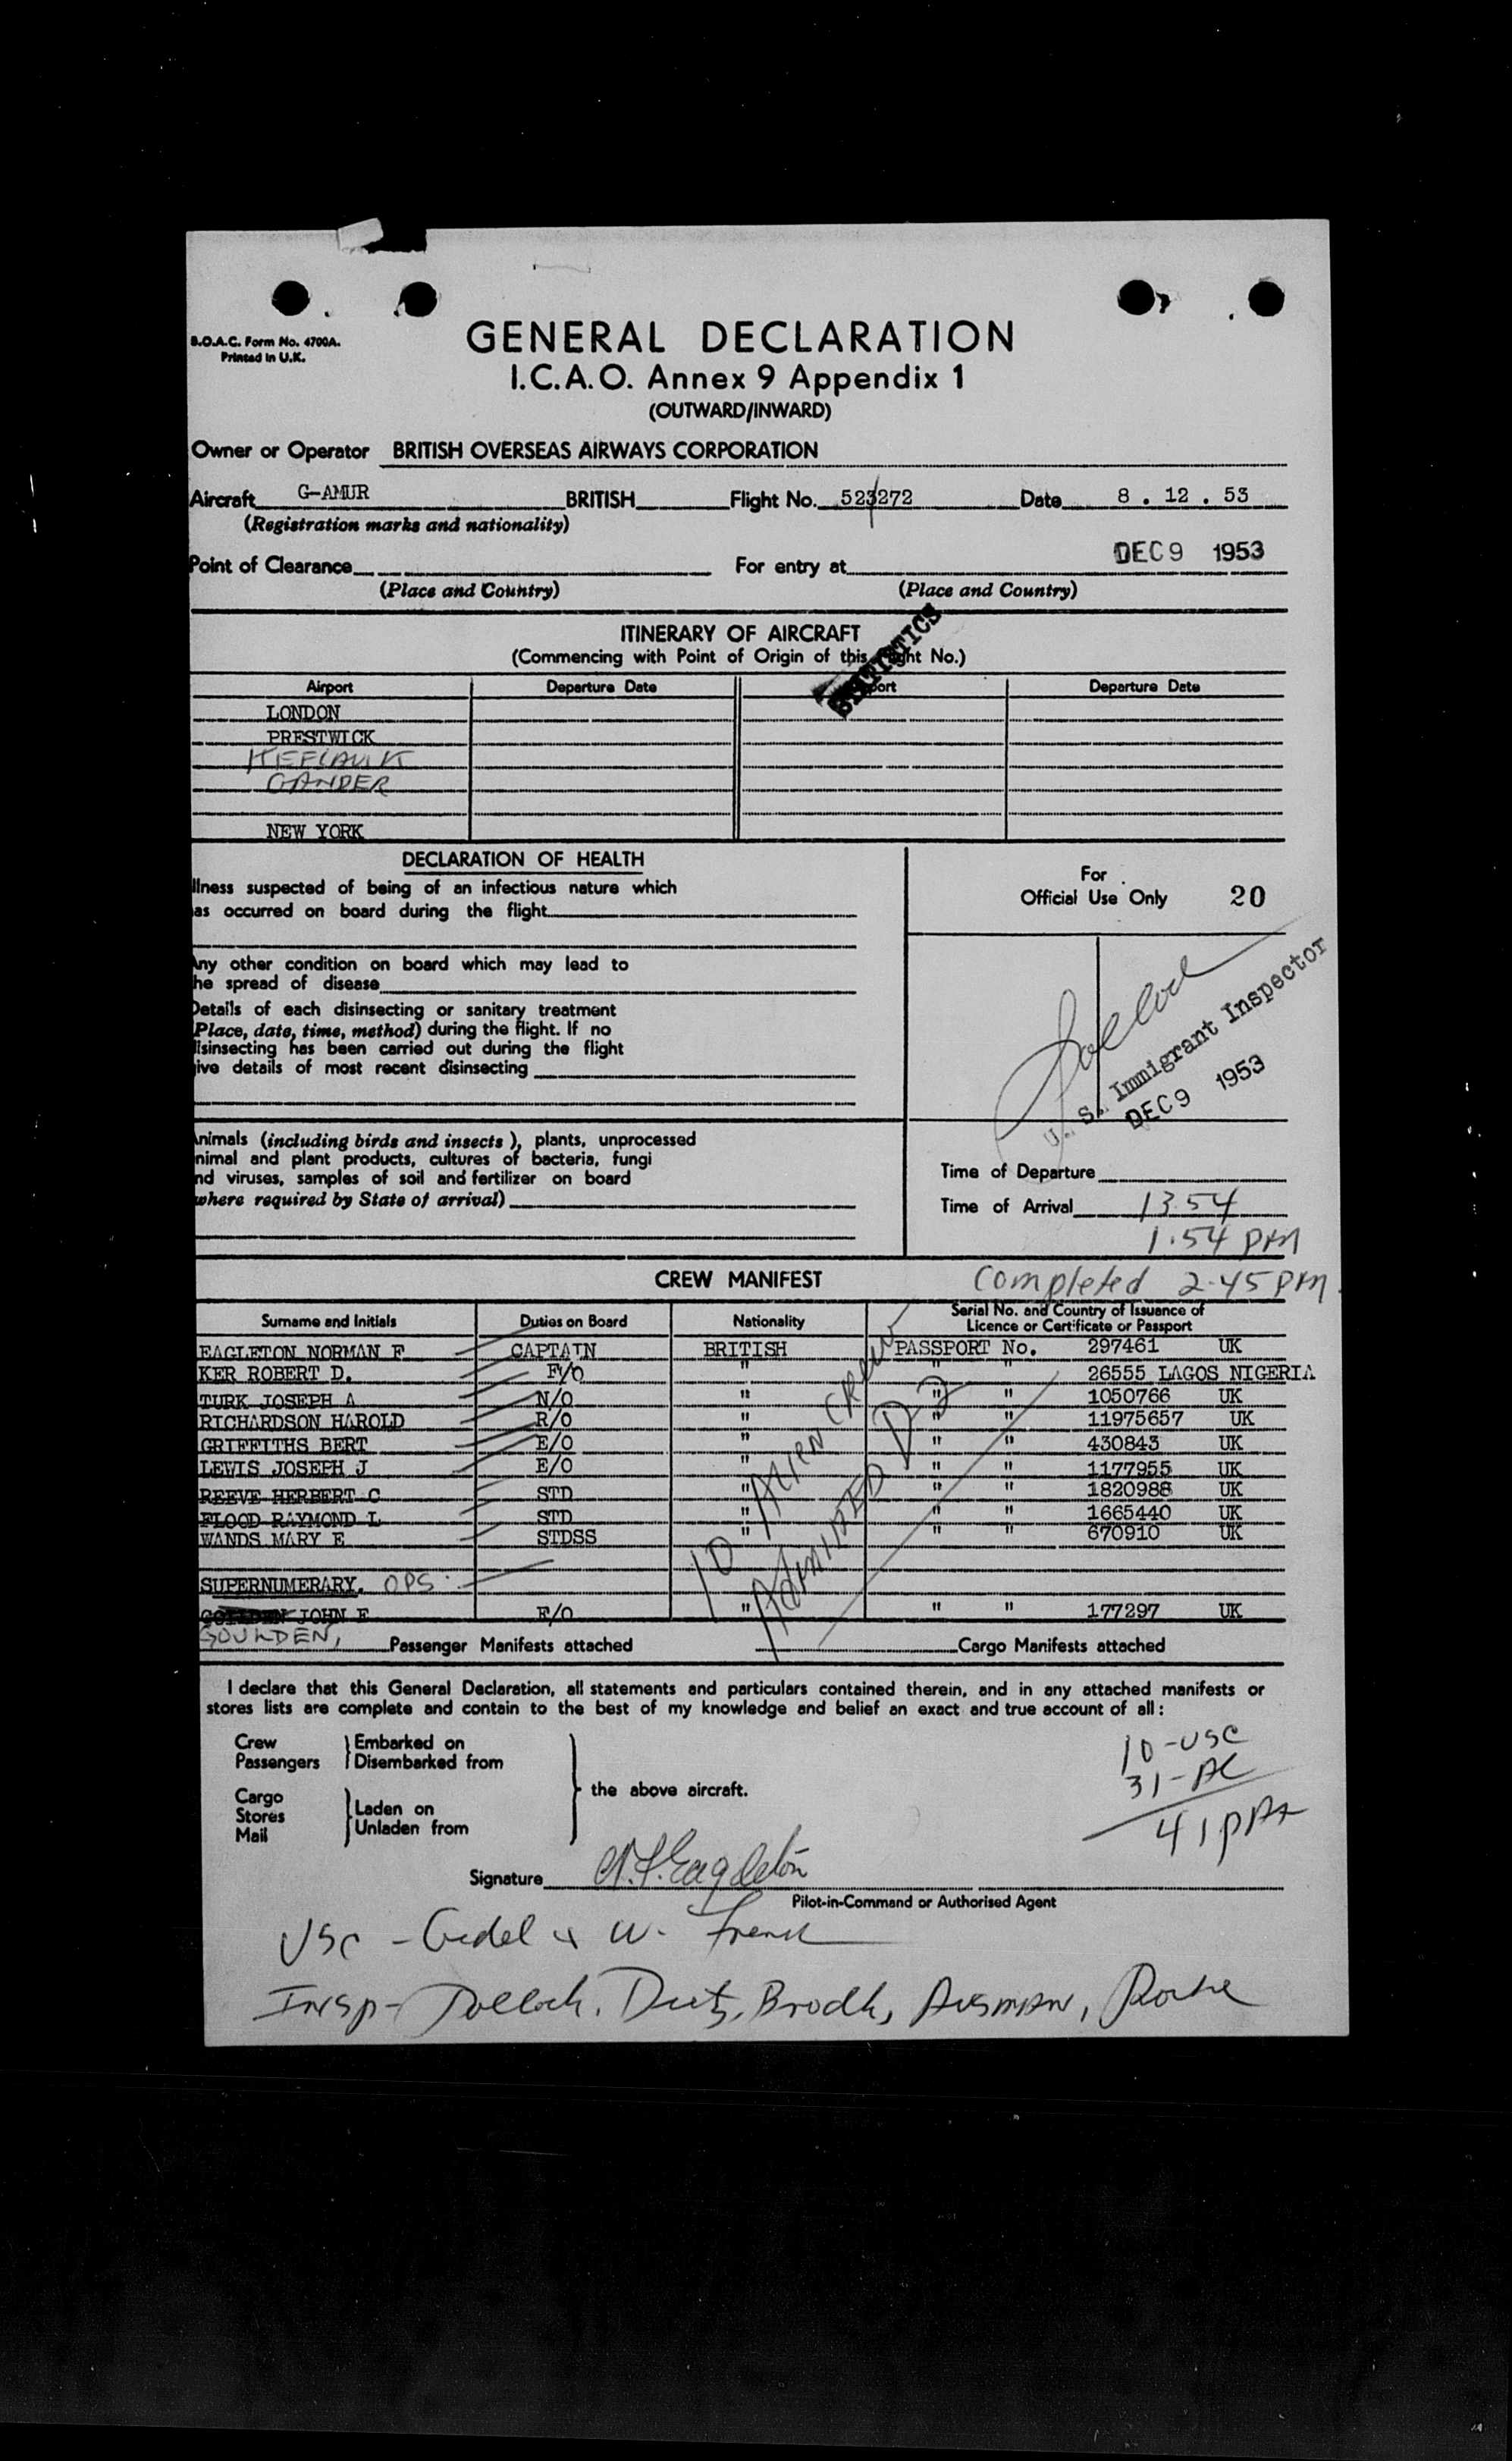 B.O.A.C. Form No. 4700A.
Printed in U.K.
GENERAL DECLARATION
I.C.A.O. Annex 9 Appendix 1
(OUTWARD/INWARD)
Owner or Operator BRITISH OVERSEAS AIRWAYS CORPORATION
Aircraft G-AMUR BRITISH Flight No. 523/272 Date 8 . 12 . 53
(Registration marks and nationality)
DEC 9 1953
Point of Clearance For entry at
(Place and Country) (Place and Country)
STATISTICS
ITINERARY OF AIRCRAFT
(Commencing with Point of Origin of this Flight No.)
Airport Departure Date Airport Departure Date
LONDON
PRESTWICK
KEFLAVIK
GANDER
NEW YORK
DECLARATION OF HEALTH
llness suspected of being of an infectious nature which
as occurred on board during the flight
Any other condition on board which may lead to
he spread of disease
Details of each disinsecting or sanitary treatment
(Place, date, time, method) during the flight. If no
disinsecting has been carried out during the flight
ive details of most recent disinsecting
Animals (including birds and insects), plants, unprocessed
nimal and plant products, cultures of bacteria, fungi
nd viruses, samples of soil and fertilizer on board
where required by State of arrival)
For
Official Use Only 20
Pollock
U. S. Immigrant Inspector
DEC 9 1953
Time of Departure
Time of Arrival 13.54
1.54 PM
CREW MANIFEST Completed 2.45 PM.
Surname and Initials Duties on Board Nationality Serial No. and Country of Issuance of
Licence or Certificate or Passport
EAGLETON NORMAN F CAPTAIN BRITISH PASSPORT No. 297461 UK
KER ROBERT D. F/O " " " 26555 LAGOS NIGERIA
TURK JOSEPH A N/O " " " 1050766 UK
RICHARDSON HAROLD R/O " " " 11975657 UK
GRIFFITHS BERT E/O " " " 430843 UK
LEWIS JOSEPH J E/O " " " 1177955 UK
REEVE HERBERT C STD " " " 1820988 UK
FLOOD RAYMOND L STD " " " 1665440 UK
WANDS MARY E STDSS " " " 670910 UK
SUPERNUMERARY. OPS.
JOHN F F/O " " " 177297 UK
GOULDEN,
10 ALIEN CREW
ADMITTED D2
Passenger Manifests attached Cargo Manifests attached
I declare that this General Declaration, all statements and particulars contained therein, and in any attached manifests or
stores lists are complete and contain to the best of my knowledge and belief an exact and true account of all :
Crew Embarked on
Passengers Disembarked from
the above aircraft.
Cargo
Stores Laden on
Mail Unladen from
10-USC
31-AL
41 PAX
Signature N.F. Eagleton
Pilot-in-Command or Authorised Agent
USC - & W. French
Insp- Pollock,